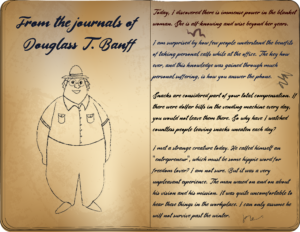 From the journals of
Douglass T. Banff
Today, I discovered there is immense power in the blinded
woman. She is all knowing and wise beyond her years.
I am surprised by how few people understand the benefits
of taking personal calls while at the office. The key here
ever, and this knowledge was gained through much
personal suffering, is how you answer the phone.
Snacks are considered part of your total compensation. If
there were dollar bills in the vending machine every day,
you would not leave them there. So why have I watched
countless people leaving snacks uneaten each day?
I met a strange creature today. He called himself an
"entrepreneur", which must be some hippie word for
freedom lover? I am not sure. But it was a very
unpleasant experience. The man went on and on about
his vision and his mission. It was quite uncomfortable to
hear these things in the workplace. I can only assume he
will not survive past the winter.